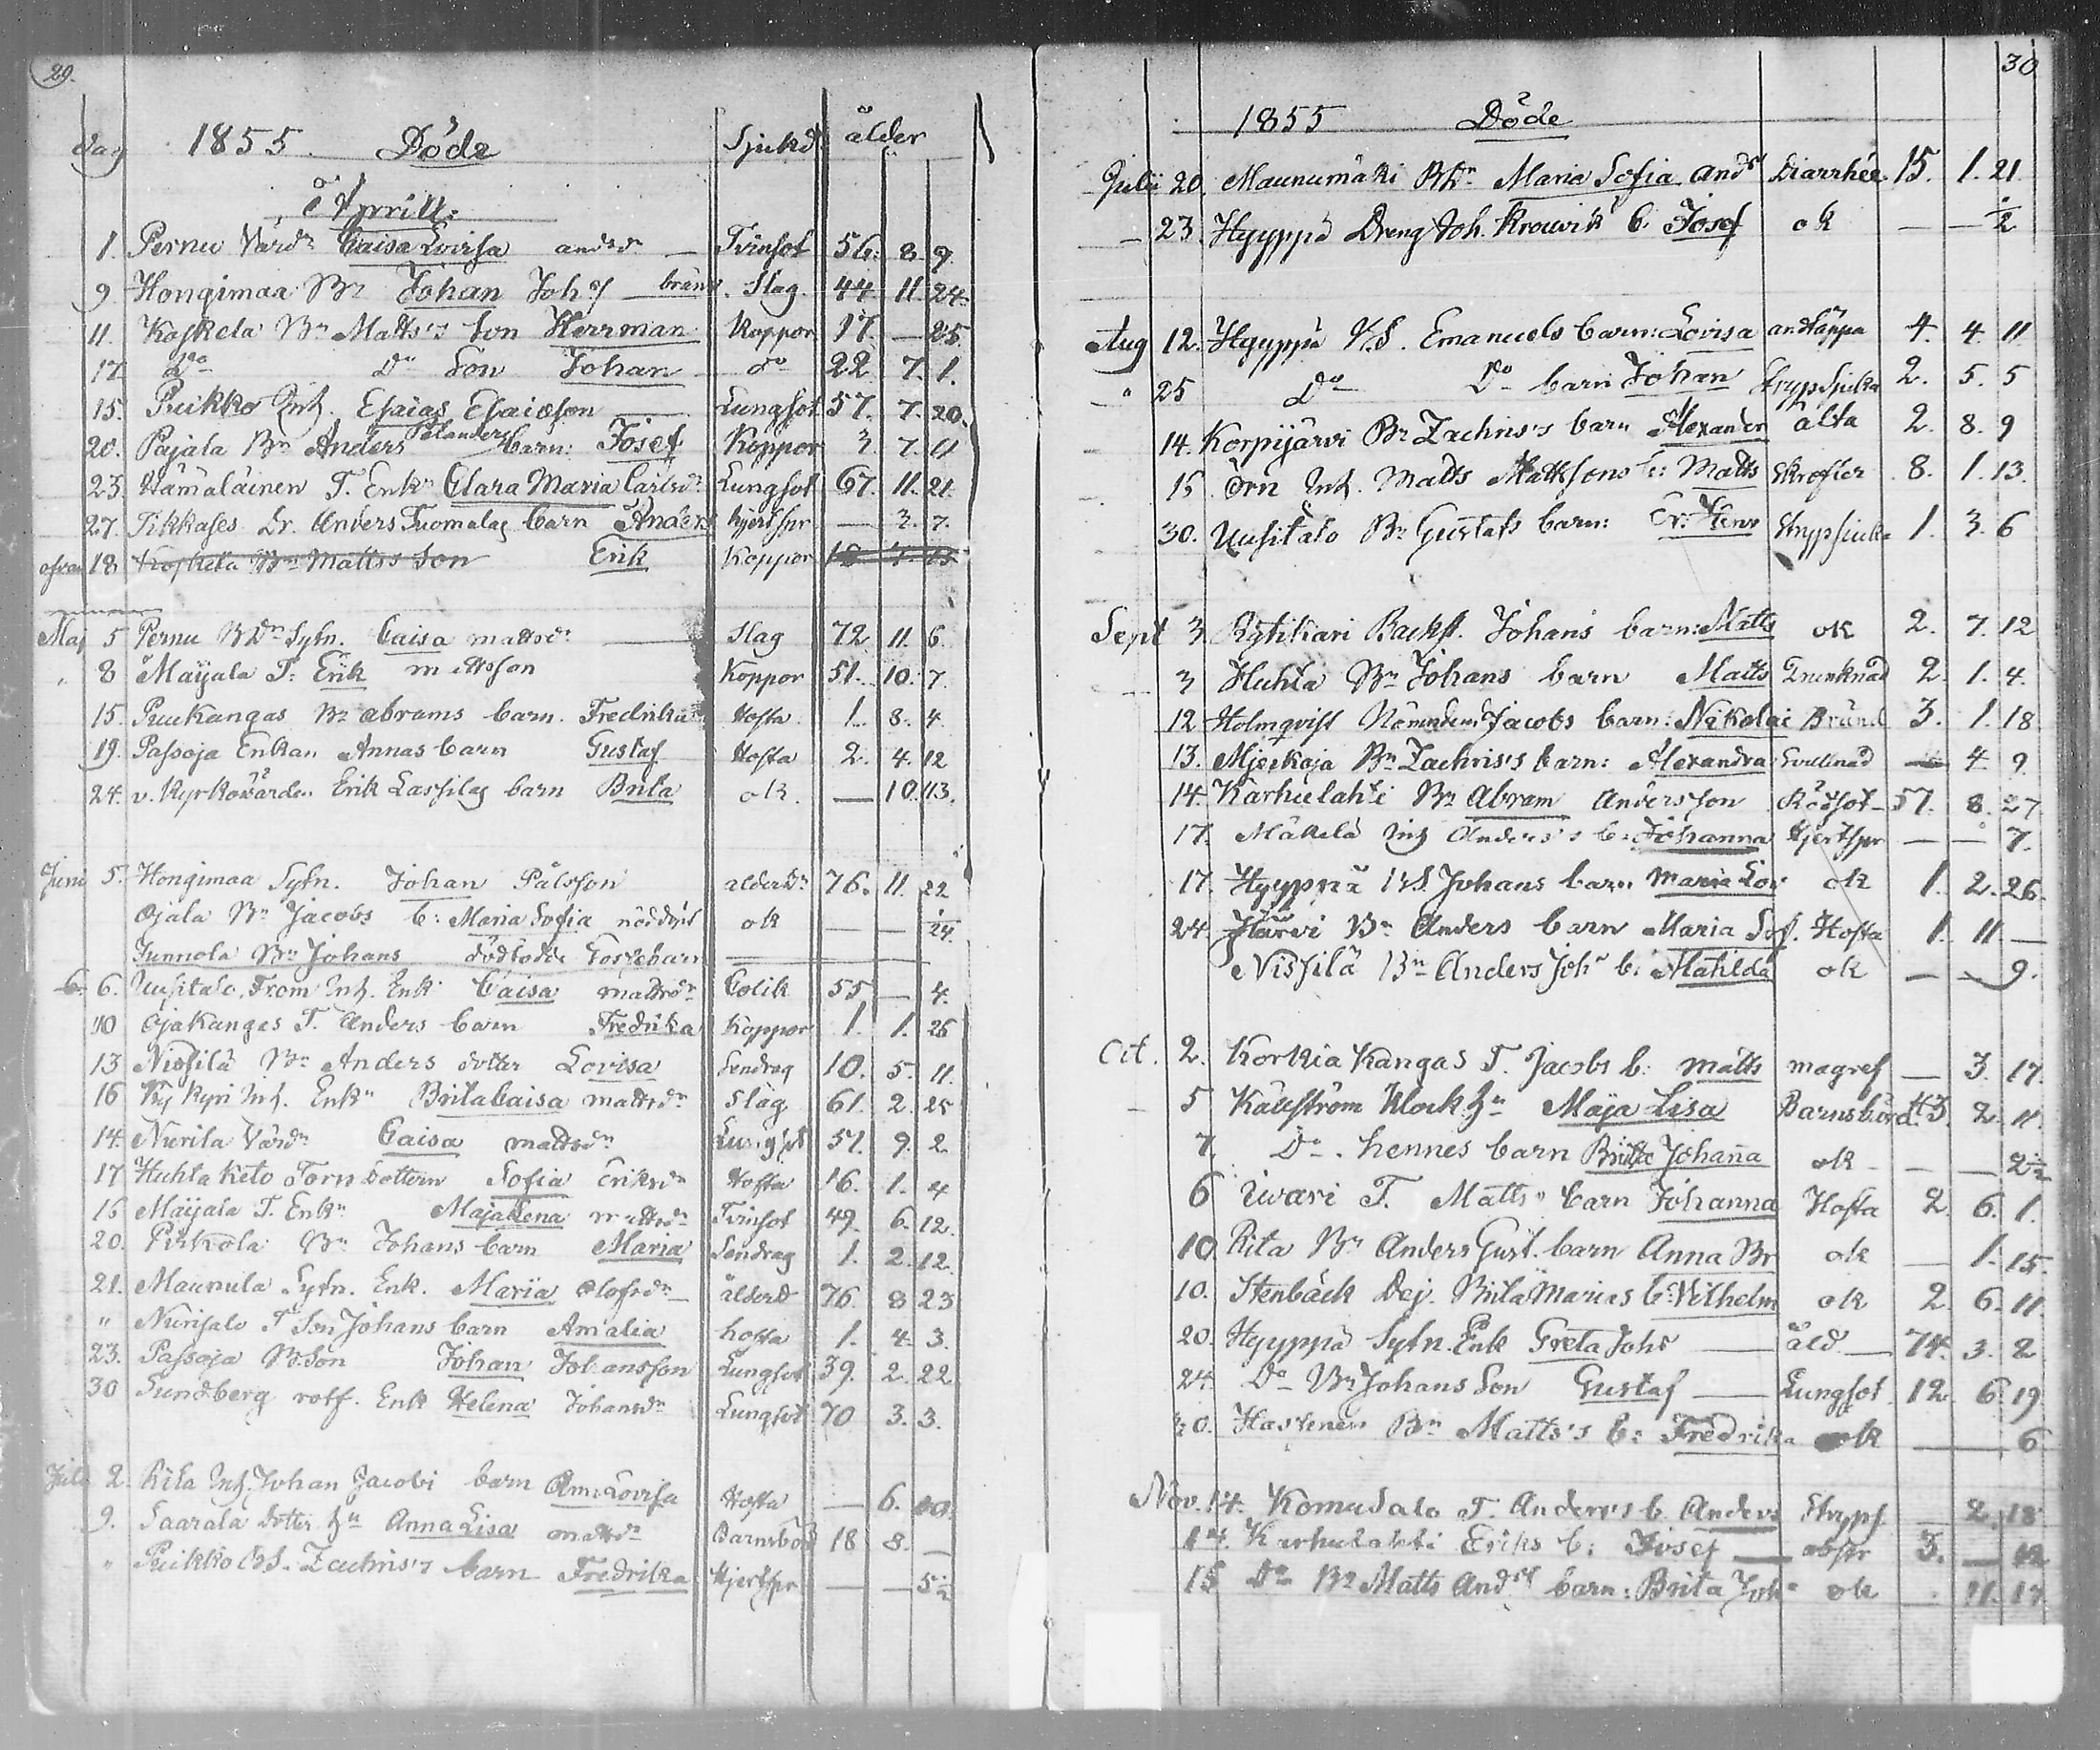 29.
dag 1855. Döde Sjukd. ålder
April.
1. Pernu Värdn Caisa Lovisa andrdr Tvinsot 56. 8. 9.
9. Hongimaa Bn Johan Johs/ Slag. 44. 11. 24.
11. Koskela Bn Matts's Son Herrman Koppor 17. — 25.
17. Do Do Son Johan do 22 7. 1.
15. Puikko Inh. Esaias Esaiæson Lungsot 57. 7. 20.
20. Pajala Bn Anders Pålanders barn: Josef Koppor 3. 7. 11
23 Hämäläinen T. Enkn Clara Maria Carlsdr Lungsot 67. 11. 21
27. Tikkases Dr. Anders Tuomalas barn Anders hjertspr — 3. 7.
ofvan 18 Koskela Bn Mattss Son Erik Koppor
Maj 5 Pernu BDn Sytn. Caisa mattsdr Slag 72 11. 6.
8 Maijala T. Erik mattsson Koppor 51. 10. 7.
15. Puukangas Bn abrams barn. Fredrika Hosta 1. 8. 4.
19. Passoja Enkan Annas barn Gustaf Hosta 2. 4. 12
24. v. Kyrkovärden Erik Lassilas barn Brita ok. — 10. 13.
Juni 5. Hongimaa Sytn. Johan Pålsson alderd. 76. 11. 22
Ojala Bn Jacobs b: Maria Sofia nöddöpt ok — —
Junnola Bn Johans dödfödde Gossebarn
6. 6. Uusitalo, From Inh. Enk Caisa mattsdr Colik 55 — 4.
10 Ojakangas T. Anders barn Fredrika Koppor 1. 1. 26
13 Nissilä Bn Anders dotter Lovisa Sendrag 10. 5. 11.
16 Kykyri Inh. Enkn Brita Caisa mattsdr Slag 61. 2. 25
14. Nurila Värdn Caisa mattsdr Lungsot 57. 9. 2
17 Huhtaketo Torp Dottern Sofia Eriksdr Hosta 16. 1. 4
16 Maijala T. Enkn Maja Lena mattsdr Tvinsot 49. 6. 12.
20. Pirkola Bn Johans barn Maria Sendrag 1. 2. 12
21. Maunula Sytn. Enk. Maria Olofsdr ålderd 76. 8 23
" Johans barn Amalia hosta 1. 4. 3.
23. Passoja B.Son Johan Johansson Lungsot 39. 2. 22
30 Sundberg rotf. Enk Helena Johansdr Lungsot 70 3. 3.
Juli 2. Rita Inh. Johan Jacobi barn Ann Lovisa Hosta — 6.
9. Saarala Dotter Anna Lisa mattsdr Barnsbörd 18 8. —
" Puikko Zachris's barn Fredrika Hjertspr — — 5½
30
1855 Döde
Julii 20 Maunumäki BDn Maria Sofia Diarrhée 15. 1. 21
23. Hyyppä Dreng Joh. b. Josef ok — — ½
Aug 12. Hyyppä Emanuels barn: Lovisa andtäppa 4. 4. 11
" 25 Do Do barn Johan Strypsjuka 2. 5. 5
14. Korpijärvi Bn Zachris's barn Alexander älta 2. 8. 9
15. Örn Inh. Matts Mattsons b: Matts Skrofler 8. 1. 13.
30. Uusitalo Bn Gustafs barn: Strypsjuka 1. 3. 6
Sept 3 Rytikari Backst. Johans barn: Matts ok 2. 7. 12
3 Huhta Bn Johans barn Matts Drunknad 2. 1. 4.
12 Holmqvist Nämndem Jacobs barn: Nikolai Bränd 3. 1. 18
13. Zachris's barn: Alexandra Svullnad — 4. 9.
14. Karhulahti Bn Abram Andersson Rödsot 57. 8. 27
17. Mäkelä Inh Anders's b: Johanna Hjertspr — — 7.
17. Hyyppä Johans barn Maria Lov ok 1. 2. 26.
24. Järvi Bn Anders barn Maria Sof. Hosta 1. 11 —
Nissilä Bn Anders Johs b. Mathilda ok — — 9.
Oct. 2. Korkia Kangas T. Jacobs b: Matts magref — 3. 17.
5 Källström Klock Maja Lisa Barnsbörd. 43. 2. 11.
7. Do . hennes barn Brita Johanna ok — — 2½
6 Uvari T. Matts barn Johanna Hosta 2. 6. 1.
10 Rita Bn Anders Gust. barn Anna Br ok — 1. 15.
10. Stenbäck Dej. Brita Marias b. Vilhelm ok 2. 6. 11.
20. Hyyppä Sytn. Enk Greta Johs åld — 74. 3. 2
24. Do Bn Johans Son Gustaf Lungsot 12. 6. 19
30. Bn Matts's b: Fredrika ok — 6
Nov. 14. Komusalo T. Anders's b. Anders Stryps — 2. 18
14. Karhulahti Eriks b: Josef 3. —
15 Do Bn Matts barn: Brita Joh ok 11. 17